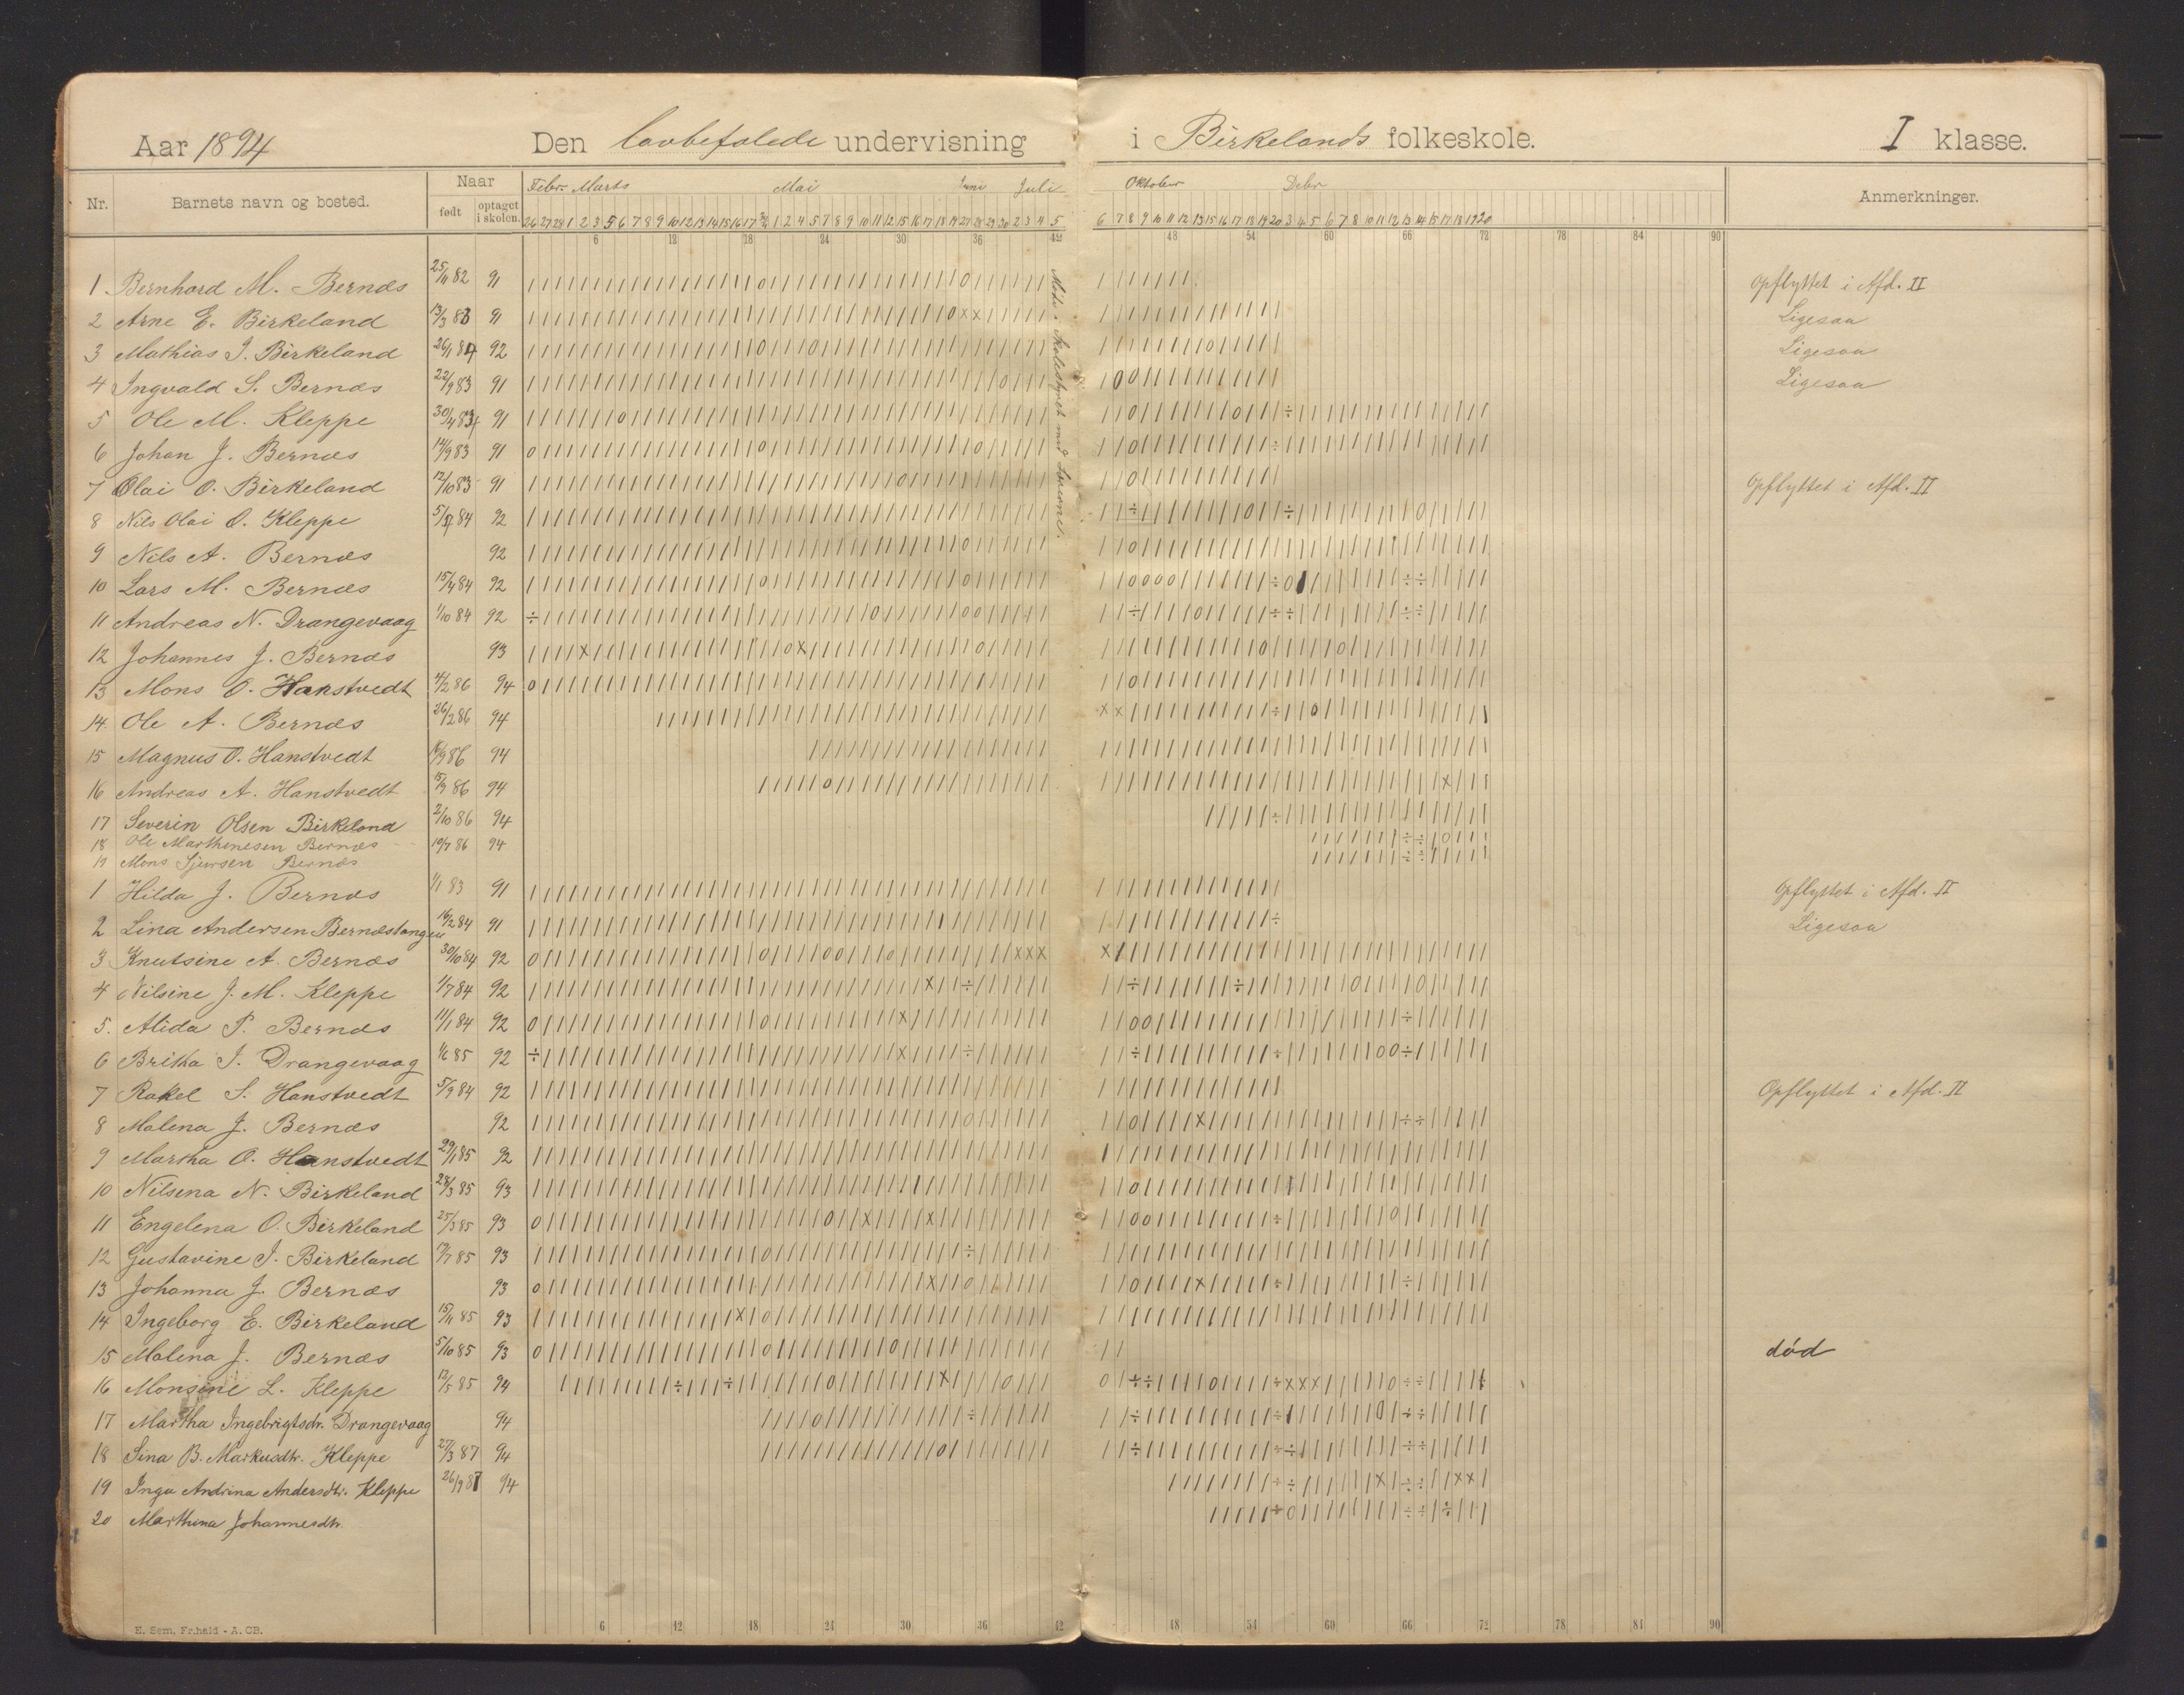 Aar 1894 Den lovbefalede undervisning i Birkelands folkeskole. I klasse.
Nr. Barnets navn og bosted. Naar født optaget i skolen. Febr. Marts Mai Juni Juli Oktober Debr Anmerkninger.
26 27 28 1 2 3 5 6 7 8 9 10 12 13 14 15 16 17 1 2 4 5 7 8 9 10 11 12 15 16 17 18 19 27 28 29 30 2 3 4 5 6 7 8 9 10 11 12 13 15 16 17 18 19 20 3 4 5 6 7 8 10 11 12 13 14 15 17 18 19 20
6 12 18 24 30 36 42 48 54 60 66 72 78 84 90
Møde i Skolestyret med Lærerne.
1 Bernhard M. Bernæs 25/11 82 91 Opflyttet i Afd. II
2 Arne E. Birkeland 13/3 83 91 Ligesaa
3 Mathias I. Birkeland 26/1 84 92 Ligesaa
4 Ingvald S. Bernæs 22/9 83 91 Ligesaa
5 Ole M. Kleppe 30/4 83 91
6 Johan J. Bernæs 14/9 83 91
7 Olai O. Birkeland 12/10 83 91 Opflyttet i Afd. II
8 Nils Olai O. Kleppe 84 92
9 Nils A. Bernæs 92
10 Lars M. Bernæs 15/4 84 92
11 Andreas N. Drangevaag 1/10 84 92
12 Johannes J. Bernæs 93
13 Mons O. Hanstvedt 4/2 86 94
14. Ole A. Bernæs 26/2 86 94
15 Magnus O. Hanstvedt 86 94
16 Andreas A. Hanstvedt 86 94
17 Severin Olsen Birkeland 2/10 86 94
18 Ole Marthinesen Bernæs 19/7 86 94
19 Mons Sjursen Bernæs
1 Hilda J. Bernæs 1/1 83 91 Opflyttet i Afd. II
2 Lina Andersen Bernæstangen 16/2 84 91 Ligesaa
3 Knutsine A. Bernæs 30/10 84 92
4 Nilsine J. M. Kleppe 1/7 84 92
5. Alida P. Bernæs 11/1 84 92
6 Brika I. Drangevaag 1/6 85 92
7 Rakel S. Hanstvedt 5/9 84 92 Opflyttet i Afd. II
8 Malena J. Bernæs 92
9 Martha O. Hanstvedt 29/1 85 92
10 Nilsina N. Birkeland 28/3 85 93
11 Engelena O. Birkeland 25/3 85 93
12 Gustavine I. Birkeland 85 93
13 Johanna J. Bernæs 93
14 Ingeborg E. Birkeland 15/11 85 93
15 Malena J. Bernæs 5/10 85 93 død
16 Monsine L. Kleppe 12/5 85 94
17 Martha Ingebrigtsdr. Drangevaag 94
18 Sina B. Markusdtr. Kleppe 27/3 87 94
19 Inga Andrina Andersdtr. Kleppe 26/9 87 94
20 Marthina Johannesdtr.
6 12 18 24 30 36 42 48 54 60 66 72 78 84 90
E. Sem, Fr.hald - A. CB.